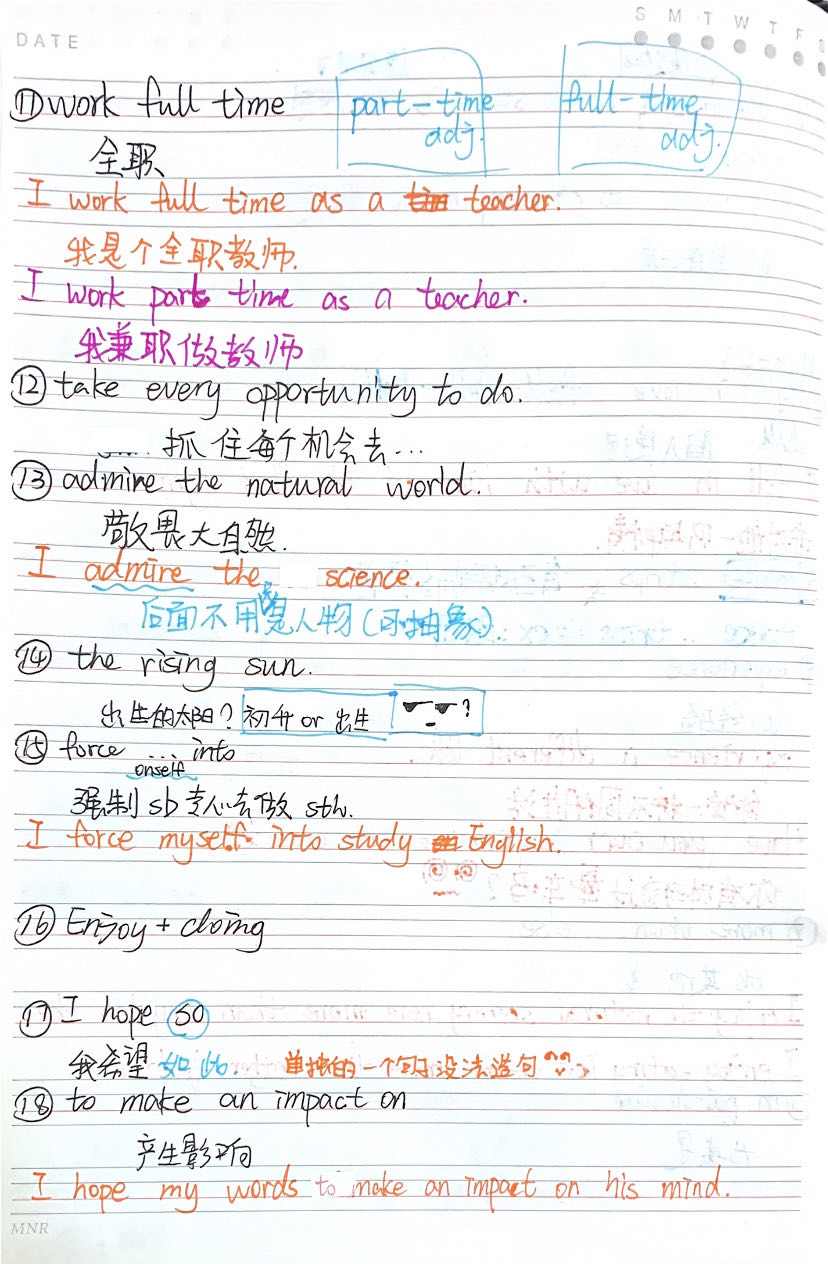 DATE
S M T W T F S
⑪ work full time
part-time
adj.
full-time
adj.
全职
I work full time as a teacher.
我是个全职教师.
I work part time as a teacher.
我兼职做教师
⑫ take every opportunity to do.
...... 抓住每个机会去...
⑬ admire the natural world.
敬畏大自然.
I admire the science.
后面不用是人物(可抽象).
⑭ the rising sun.
出生的太阳? 初升 or 出生 ?
⑮ force ... into
onself
强制 sb 专心去做 sth.
I force myself into study English.
⑯ Enjoy + doing
⑰ I hope so
我希望如此. 单独的一个句子没法造句
⑱ to make an impact on
产生影响
I hope my words to make an impact on his mind.
MNR